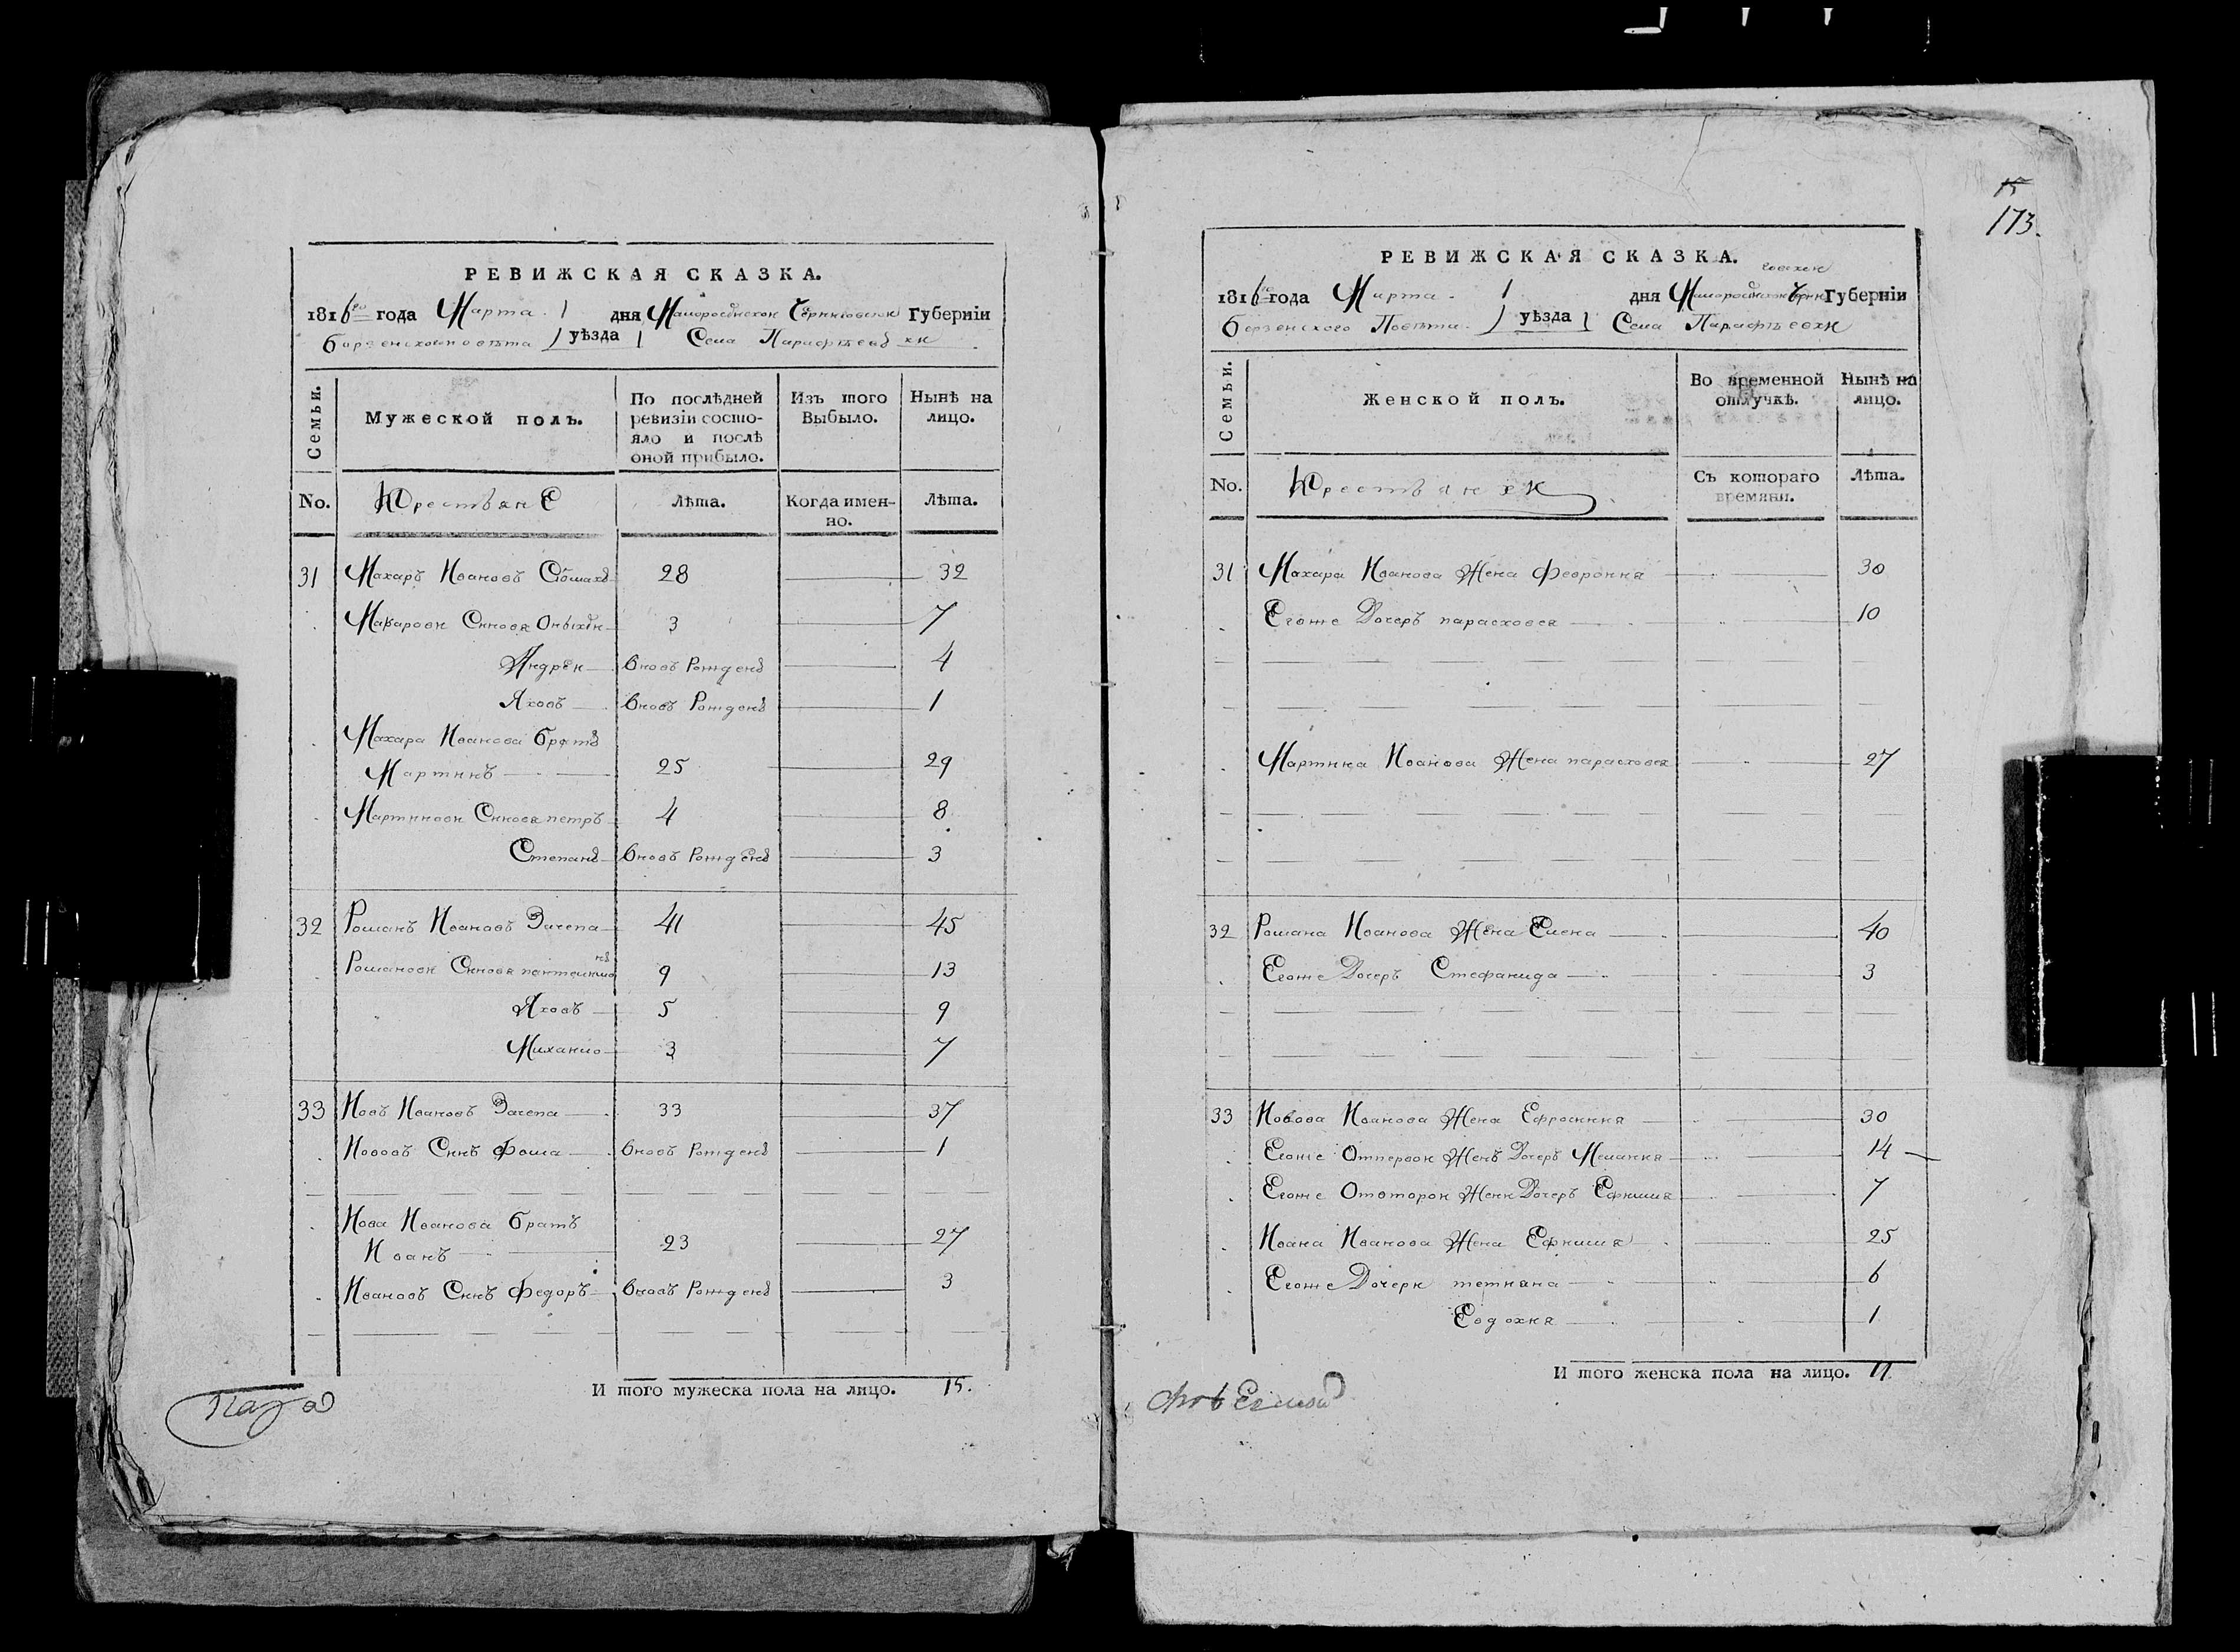 РЕВИЖСКАЯ СКАЗКА.
1816го года Марта 1 дня Малоросійской Черниговской Губерніи
Борзенского повѣта уѣзда Села Парафѣевки
Семьи. Мужеской полъ. По послѣдней ревизіи состояло и послѣ оной прибыло. Изъ того Выбыло. Нынѣ на лицо.
No. Крестьяне Лѣта. Когда именно. Лѣта.
31 Макаръ Ивановъ 28 32
Макаровы Сыновя 3 7
Андрей вновь рожденъ 4
Яковъ вновь рожденъ 1
Макара Иванова братъ
Мартинъ 25 29
Мартиновы Сыновя петръ 4 8
Степанъ вновь рожденъ 3
32 Романъ Ивановъ Зачепа 41 45
Романовы Сыновя пантелимонъ 9 13
Яковъ 5 9
Михайло 3 7
33 Иовъ Ивановъ Зачепа 33 37
Иововъ Сынъ фома вновь рожденъ 1
Иова Иванова братъ
Иванъ 23 27
Ивановъ Сынъ федоръ вновь рожденъ 3
И того мужеска пола на лицо. 15.
15
173.
РЕВИЖСКАЯ СКАЗКА.
1816го года Марта 1 дня Малоросійской Черниговской Губерніи
Борзенского Повѣта уѣзда Села Парафѣевки
Семьи. Женской полъ. Во временной отлучкѣ. Нынѣ на лицо.
No. Крестьянки Съ котораго времяни. Лѣта.
31 Макара Иванова Жена феврония 30
Егоже Дочеръ парасковея 10
Мартина Иванова Жена парасковея 27
32 Романа Иванова Жена Елена 40
Егоже Дочеръ Стефанида 3
33 Иовова Иванова Жена Ефросиния 30
Егоже Отпервой Жены Дочеръ Мелания 14
Егоже Отвторой Жены Дочеръ Ефимия 7
Ивана Иванова Жена Ефимия 25
Егоже Дочери тетияна 6
Евдокия 1
И того женска пола на лицо. 11